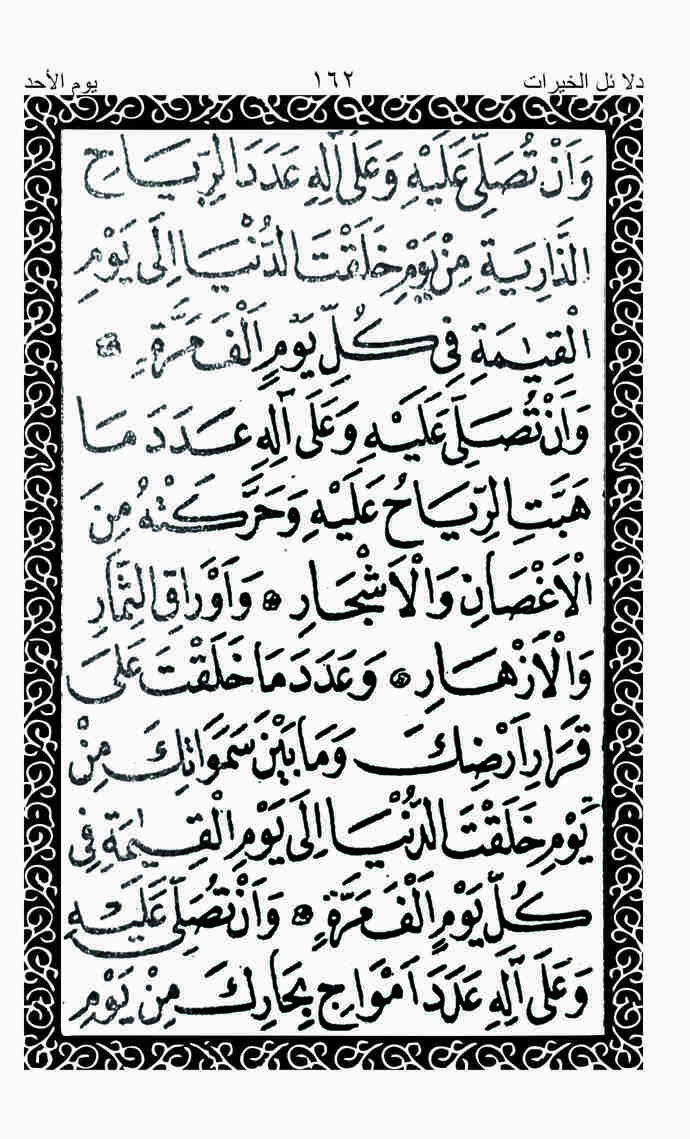 دلائل الخيرات ١٦٢ يوم الأحد
وَاَنْ تُصَلِّيَ عَلَيْهِ وَعَلَى اٰلِهِ عَدَدَ الرِّيَاحِ
الذَّارِيَةِ مِنْ يَوْمِ خَلَقْتَ الدُّنْيَا اِلَى يَوْمِ
الْقِيٰمَةِ فِي كُلِّ يَوْمٍ اَلْفَ مَرَّةٍ
وَاَنْ تُصَلِّيَ عَلَيْهِ وَعَلَى اٰلِهِ عَدَدَ مَا
هَبَّتِ الرِّيَاحُ عَلَيْهِ وَحَرَّكَتْهُ مِنَ
الْاَغْصَانِ وَالْاَشْجَارِ وَاَوْرَاقِ الثِّمَارِ
وَالْاَزْهَارِ وَعَدَدَ مَا خَلَقْتَ عَلَى
قَرَارِ اَرْضِكَ وَمَا بَيْنَ سَمَوَاتِكَ مِنْ
يَوْمِ خَلَقْتَ الدُّنْيَا اِلَى يَوْمِ الْقِيٰمَةِ فِي
كُلِّ يَوْمٍ اَلْفَ مَرَّةٍ وَاَنْ تُصَلِّيَ عَلَيْهِ
وَعَلَى اٰلِهِ عَدَدَ اَمْوَاجِ بِحَارِكَ مِنْ يَوْمِ